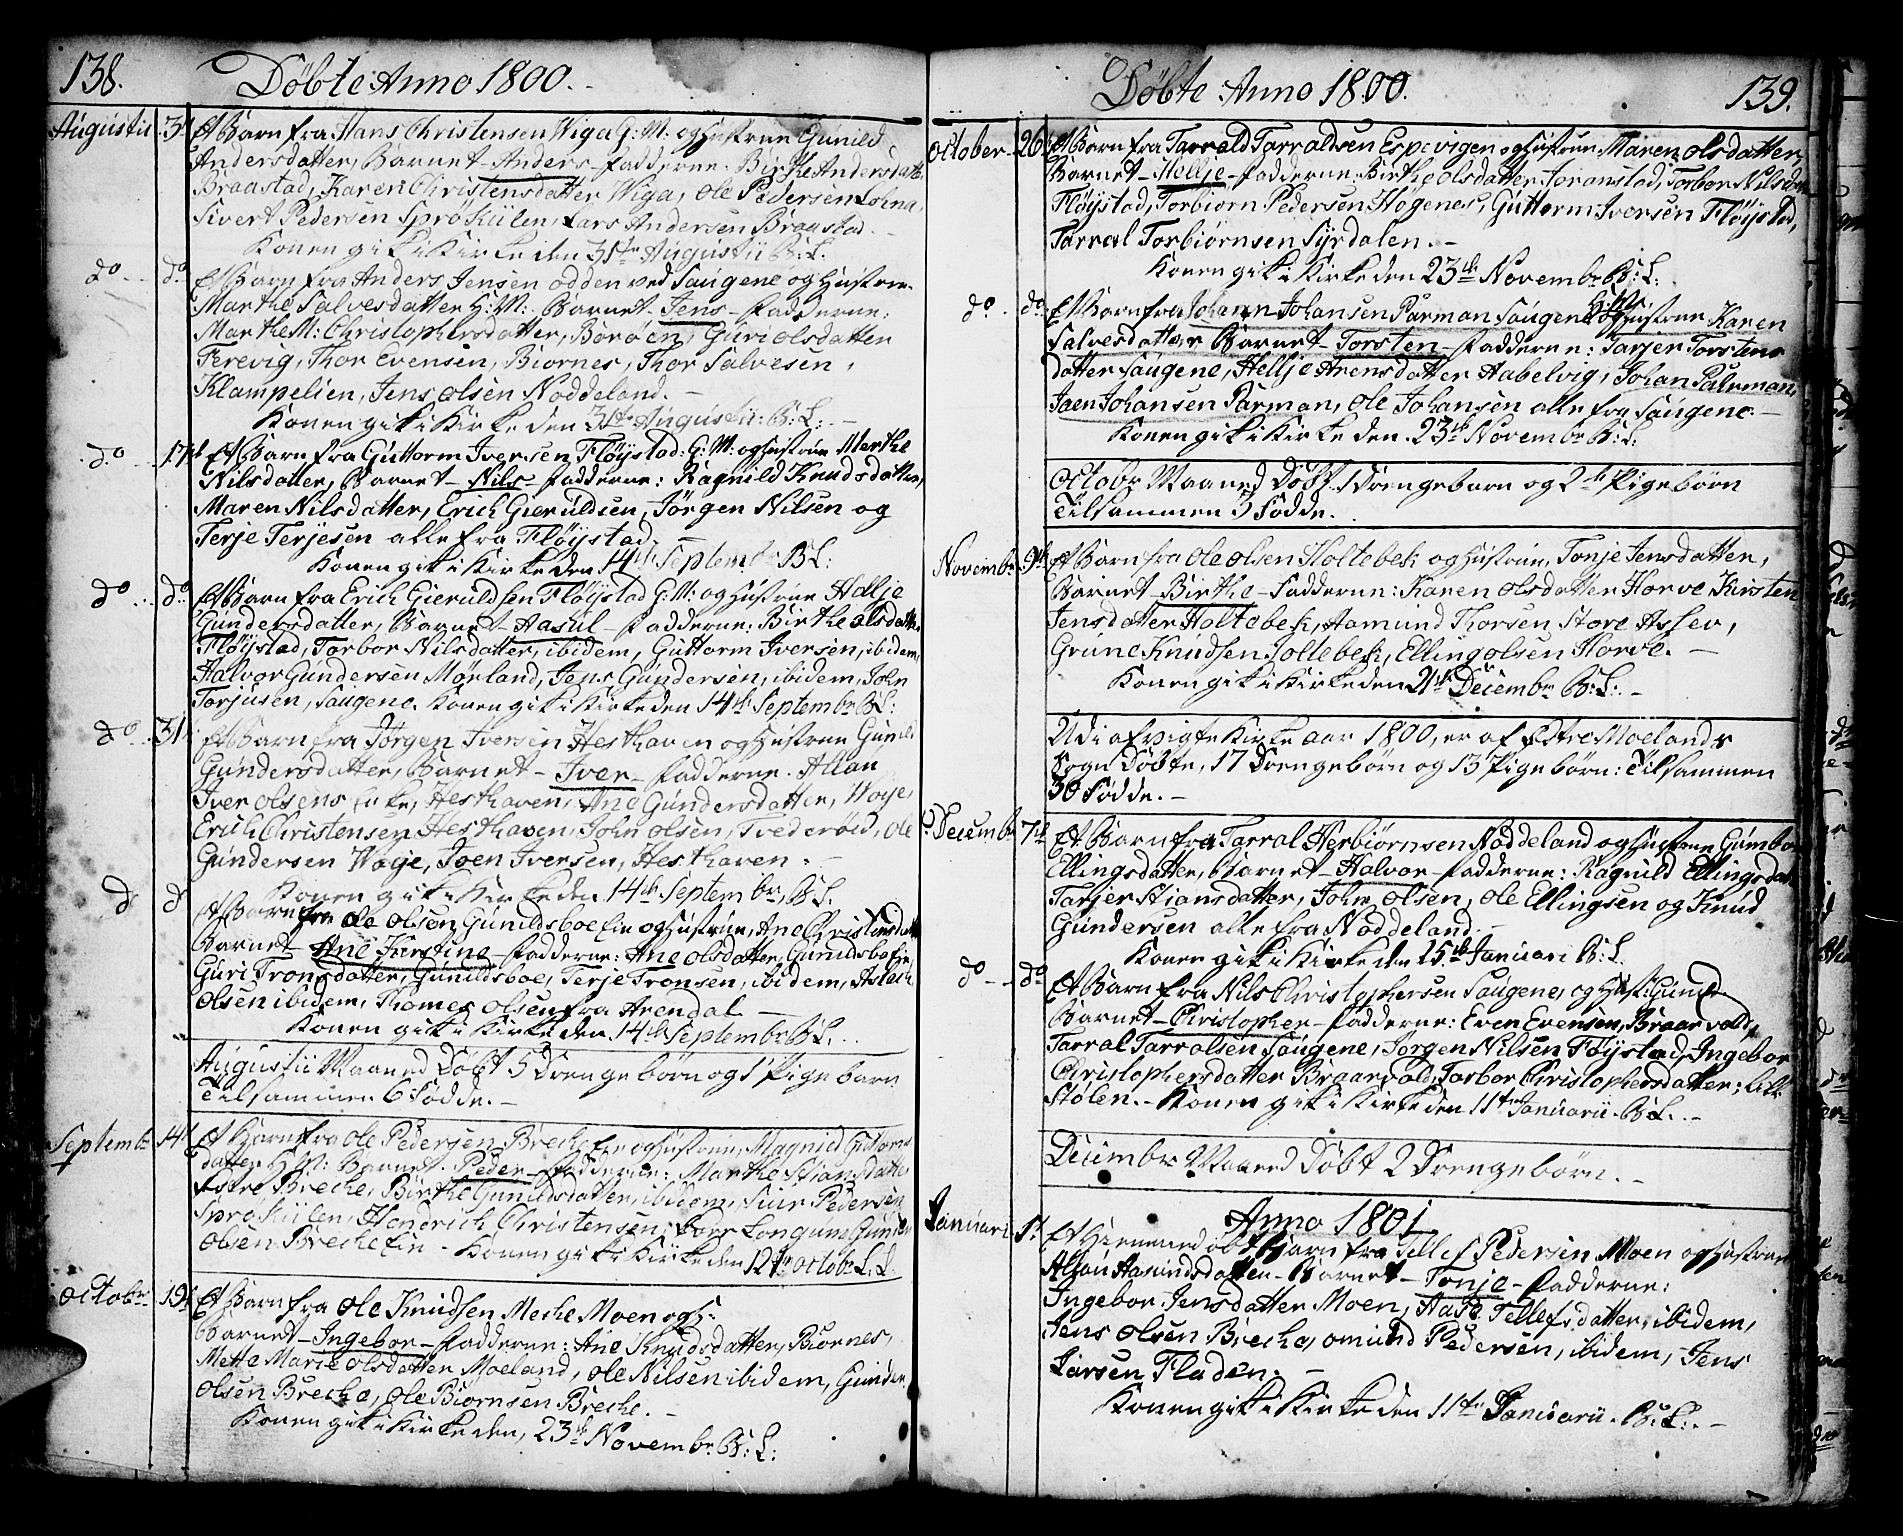 138. Döbte Anno 1800.
Augustii 3d Et Barn fra Hans Christensen Wiga G: M: og Hustrue Gunild
Andersdatter, Barnet - Anders - Fadderne: Birthe Andersdatter
Braastad, Karen Christensdatter Wiga, Ole Pedersen Løina,
Sivert Pedersen Sprøkiilen, Lars Andersen Braastad. -
Konen gik i Kirke den 31te Augustii B: L:
do do Et Barn fra Anders Jensen Odden ved Saugene og Hustrue
Marthe Salvesdatter H: M: Barnet - Jens - Fadderne:
Marthe M: Christophersdatter, Borøen, Guri Olsdatter
Ferevig, Thor Evensen, Biornes, Thor Salvesen,
Klampelien, Jens Olsen Noddeland. -
Konen gik i Kirke den 31te Augustii: B: L: -
do 17d Et Barn fra Guttorm Iversen Fløystad: G: M: og Hustrue Marthe
Nilsdatter, Barnet - Nils - Fadderne: Ragnild Knudsdatter,
Maren Nilsdatter, Erich Gieruldsen, Jörgen Nilsen og
Terje Terjesen alle fra Fløystad.
Konen gik i Kirke den 14de Septembr B L:
do do Et Barn fra Erich Gieruldsen Fløystad G: M: og Hustrue Hellje
Gundersdatter, Barnet - Aasul - Fadderne: Birthe Olsdatter
Fløystad, Torbor Nilsdatter, ibidem, Guttorm Iversen, ibidem,
Halvor Gundersen Mørland, Jens Gundersen, ibidem, John
Torjusen, Saugene. Konen gik i Kirke den 14de Septembr B: L:
do 31 Et Barn fra Jörgen Iversen Hesthaven og Hustrue Gunild
Gundersdatter, Barnet - Iver - Fadderne: Allau
Iver Olsens Enke, Hesthaven, Ane Gundersdatter, Woje,
Erich Christensen Hesthaven, John Olsen, Trederöed, Ole
Gundersen Woje, Joen Iversen, Hesthaven. -
Konen gik i Kirke den 14de Septembr, B: L.
d d Et Barn fra Ole Olsen Gunildsboe Eie og Hustrue, Ane Christensdatter
Barnet - Ane Kirstine - Fadderne: Ane Olsdatter, Gunildsboe Eie,
Guri Tronsdatter, Gunildsboe, Terje Tronsen, ibidem, Aslach
Olsen ibidem, Thomes Olsen fra Arendal -
Konen gik i Kirke den 14de Septembr B: L. . .
Augustii Maaned Döbt 5 Drengebørn og 1 Pigebarn
Tilsammen 6 Födde. -
Septembr 14d Et Barn fra Ole Pedersen Breche Eie og Hustrue, Magnild Guttorms
datter H: M: Barnet - Peder - Fadderne: Marthe Stiansdatter
Estre Breche, Birthe Gunildsdatter, ibidem, Siur Pedersen
Sprøkiilen, Hendrich Christensen, Lars Longum Gunder
Olsen Breche Eie - Konen gik i Kirke den 12te Octobr L: L.
Octobr 19d Et Barn fra Ole Knudsen Meche Moen og H:
Barnet - Ingebor - Fadderne: Ane Knudsdatter, Biornes,
Mette Marie Olsdatter, Moeland, Ole Nilsen ibidem, Gunder
Olsen Breche, Ole Biornsen Breche. -
Konen gik i Kirke den, 23de Novembr B: L:
Döbte Anno 1800. 139.
October 26 Et Barn fra Tarrald Tarraldsen Espevigen og Hustrue, Maren Olsdatter,
Barnet - Hellje - Fadderne: Birthe Olsdatter Joranstad, Torbor Nilsdatter
Fløystad, Torbiorn Pedersen Høgenes, Guttorm Iversen Fløystad,
Tarral Torbiørnsen Syrdalen. -
Konen gik i Kirke den 23de Novembr B: L:
do do Et Barn fra Johann Johansen Parman Saugene og Hustrue Karen
H: M:
Salvesdatter Barnet - Torsten - Fadderne: Tarjer Torstens
datter Saugene, Hellje Arensdatter Aabelvig, Johan Parman,
Jaen Johansen Parman, Ole Johansen alle fra Saugene. -
Konen gik i Kirke den 23de Novembr B: L:
Octobr Maaned Döbt 1 Drengebarn og 2de Pigebørn
Tilsammen 3 Födde.
Novembr 9d Et Barn fra Ole Olsen Holtebek og Hustrue, Tonje Jensdatter,
Barnet - Birthe - Fadderne: Karen Olsdatter Horve, Kirsten
Jensdatter Holtebek, Aamund Thorsen Store Assev,
Grune Knudsen Sollebek, Elling Olsen Horve. -
Konen gik i Kirke den 21de Decembr B: L: -
Udi afvigte Kirke aar 1800, er af Estre Moelands
Sogn Döbte, 17 Drengebørn og 13 Pigebørn: Tilsammen
30 Födde. -
Decembr 7d Et Barn fra Tarral Herbiørnsen Noddeland og Hustrue Gumbor
Ellingsdatter, Barnet - Halvor - Fadderne: Ragnild Ellingsdatter
Tarjer Stiansdatter, John Olsen, Ole Ellingsen og Knud
Gundersen alle fra Noddeland. -
Konen gik i Kirke den 15de Januari B: L.
do do Et Barn fra Nils Christophersen Saugene, og Hust: Gunild
Barnet - Christopher - Fadderne: Even Evensen, Braarvold,
Tarral Tarralsen Saugene, Jörgen Nilsen Fløystad, Ingebor
Christophersdatter Braarvold, Torbor Christophersdatter, Lill
Stölen. - Konen gik i Kirke den 11te Januarii. B: L. -
Decembr Maaned Döbt 2 Drengebörn. -
Anno 1801
Januari 1d Et Hiemmedöbt Barn fra Tellef Pedersen Moen og Hustrue
Allau Aasundsdatter - Barnet - Tonje - Fadderne:
Ingebor Jensdatter Moen, Aase Tellefsdatter, ibidem,
Jens Olsen Breche, Omund Pedersen, ibidem, Jens
Larsen Fladen. -
Konen gik i Kirke den 11te Januarii. B: L: -